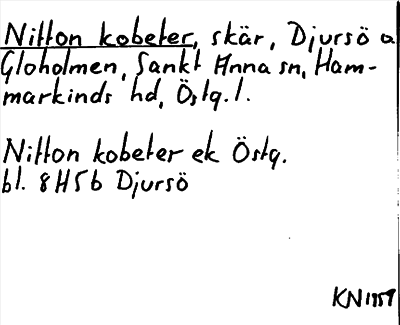 Nitton kobeter, skär, Djursö a
Gloholmen, Sankt Anna sn, Ham-
markinds hd, Östg. l.
Nitton kobeter ek Östg.
bl. 8H5b Djursö
KN 1959